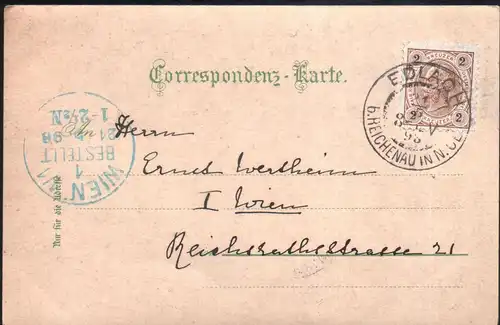 Correspondenz-Karte.
2 KREUZER 2
2 2
EDLACH
98
b. REICHENAU IN N.OE.
WIEN 1/1
1
BESTELLT
21 98
1-2½N
An Herrn
Ernst Wertheim
I Wien
Reichsrathsstrasse 21
Nur für die Adresse